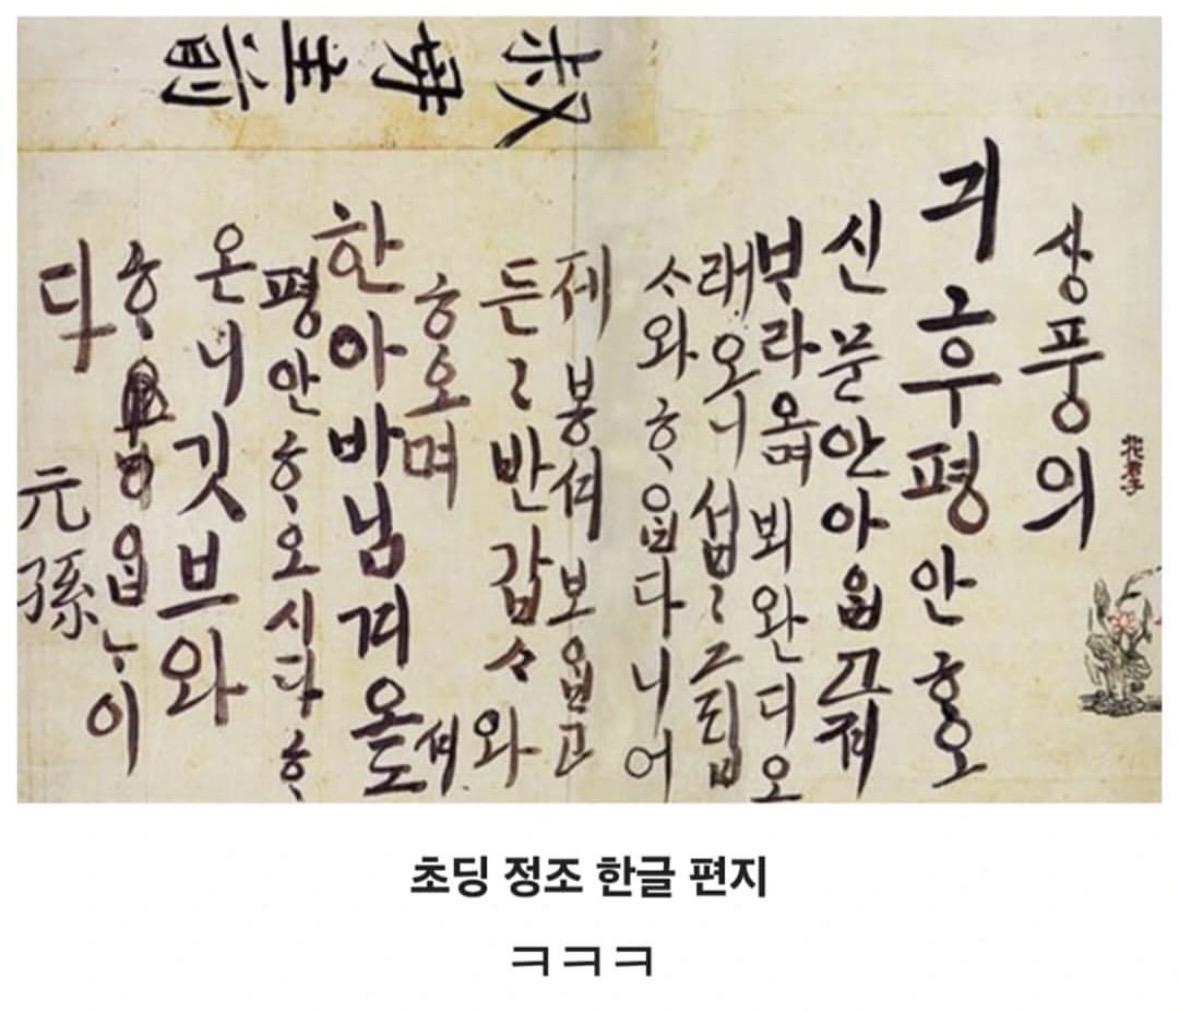 叔母主前
상풍의
긔후평안ᄒᆞ오
신문안아ᄋᆞᆸ고져
ᄇᆞ라오며뵈완디오
래오니섭〻그립
ᄉᆞ와ᄒᆞᄋᆞᆸ다니어
제봉셔보ᄋᆞᆸ고
든〻반갑ᄉᆞ와
ᄒᆞ오며
한아바님겨오셔도
평안ᄒᆞ오시다ᄒᆞ
온니깃브와
ᄒᆞᄋᆞᆸᄂᆞ이
다 元孫
초딩 정조 한글 편지
ㅋㅋㅋ